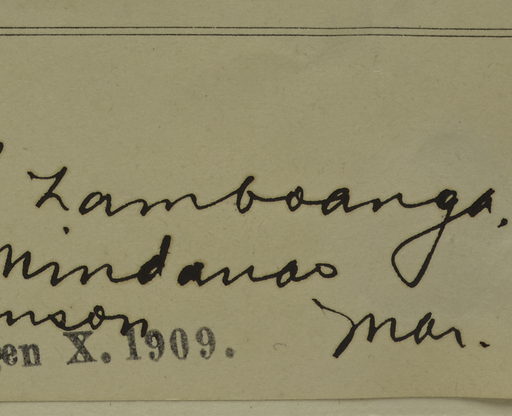 Zamboanga.
Mindanao
nson Mar.
en X. 1909.